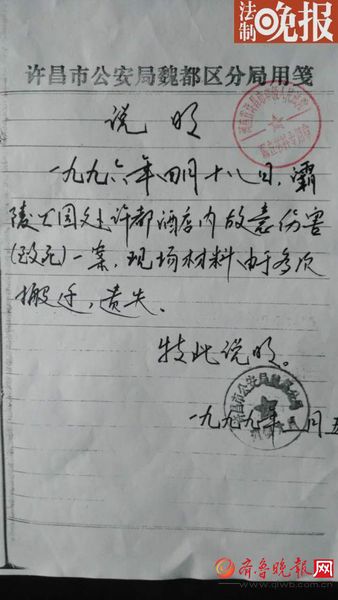 法制晚报
许昌市公安局魏都区分局用笺
说明
一九九六年四月十八日,霸
陵公园处许都酒店内故意伤害
(致死)一案,现场材料由于多次
搬迁,遗失。
特此说明。
许昌市公安局魏都分局
一九九九年 月五
齐鲁晚报网
www.qlwb.com.cn